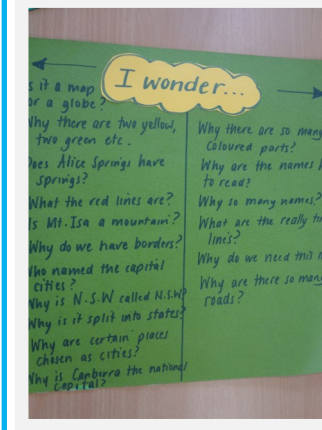 I wonder...
s it a map
or a globe?
Why there are two yellow,
two green etc.
Does Alice Springs have
springs?
What the red lines are?
Is Mt. Isa a mountain?
Why do we have borders?
Who named the capital
cities?
Why is N.S.W called N.S.W?
Why is it split into states?
Why are certain places
chosen as cities?
Why is Canburra the national
capital?
Why there are so many
Coloured parts?
Why are the names
to read?
Why so many names?
What are the really
lines?
Why do we need this
Why are there so many
roads?